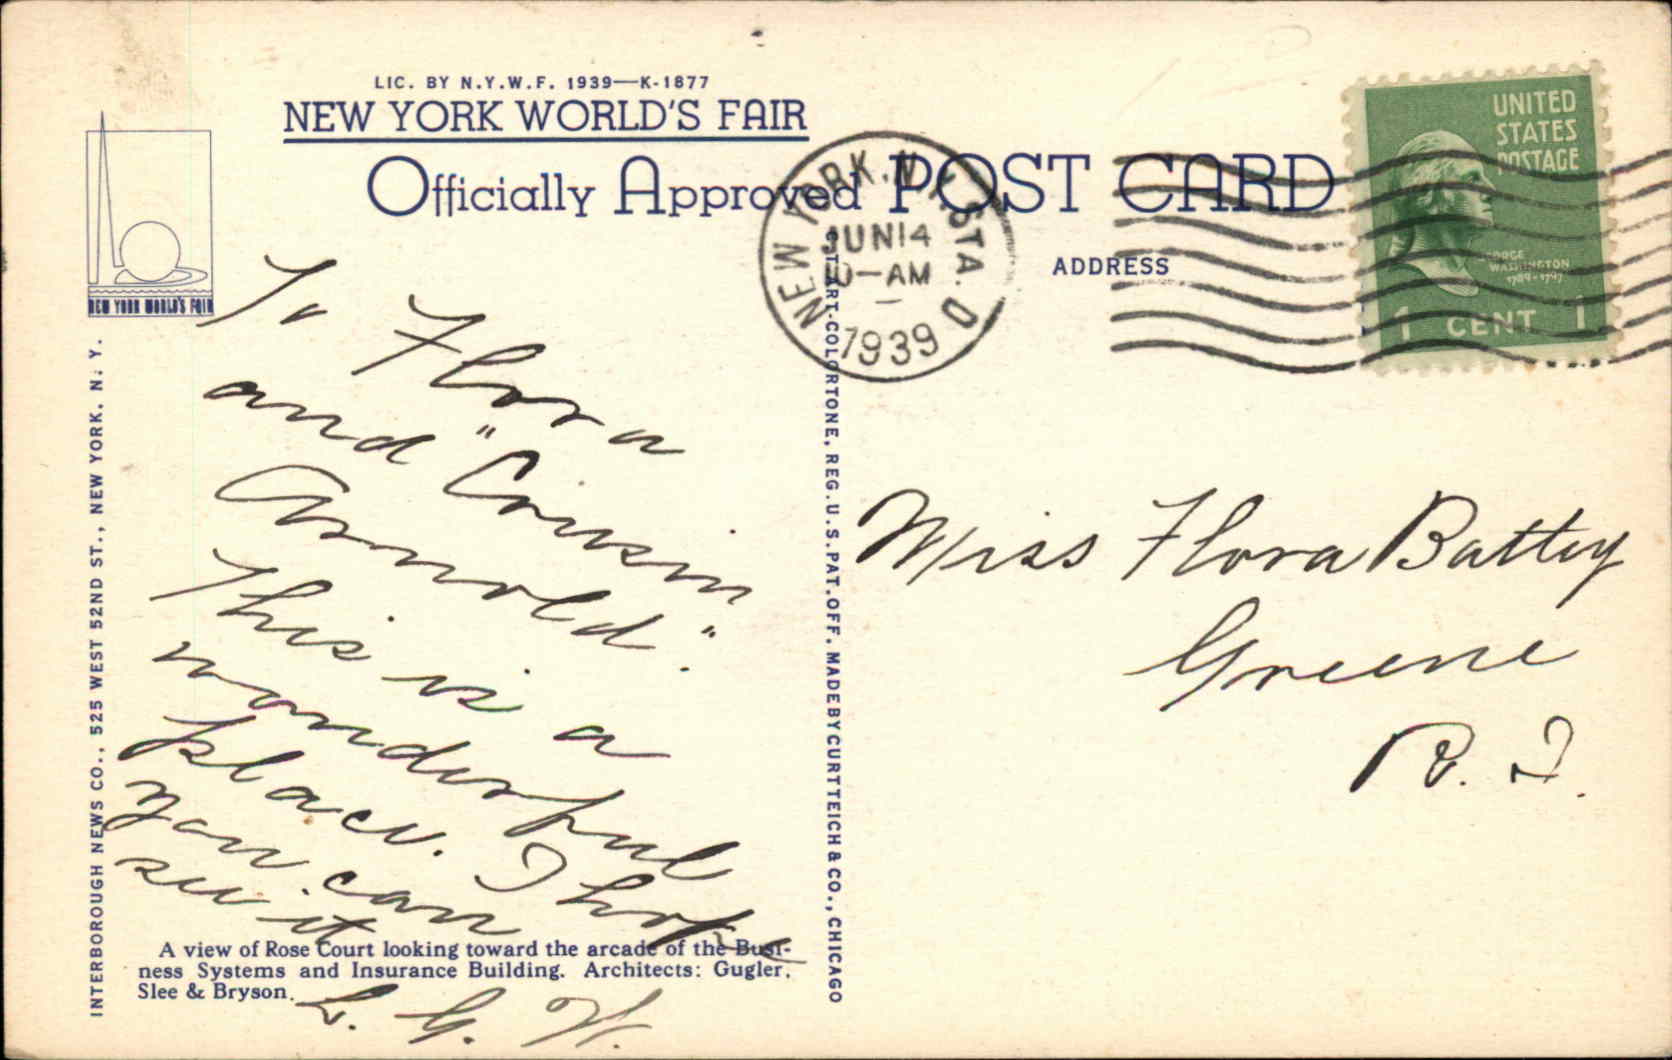 LIC. BY N.Y.W.F. 1939—K-1877
NEW YORK WORLD'S FAIR
Officially Approved POST CARD
NEW YORK WORLD'S FAIR
NEW YORK, N.Y. STA. D
JUN 14
10-AM
1939
UNITED
STATES
POSTAGE
GEORGE
WASHINGTON
1789-1797
1 CENT 1
ADDRESS
To Flora
and "Cousin
Arnold".
This is a
wonderful
place. I hope
you can
see it
L. G. W.
Miss Flora Battey
Greene
R. I.
A view of Rose Court looking toward the arcade of the Busi-
ness Systems and Insurance Building. Architects: Gugler,
Slee & Bryson.
INTERBOROUGH NEWS CO., 525 WEST 52ND ST., NEW YORK, N. Y.
CT·ART-COLORTONE, REG. U.S. PAT. OFF. MADE BY CURT TEICH & CO., CHICAGO